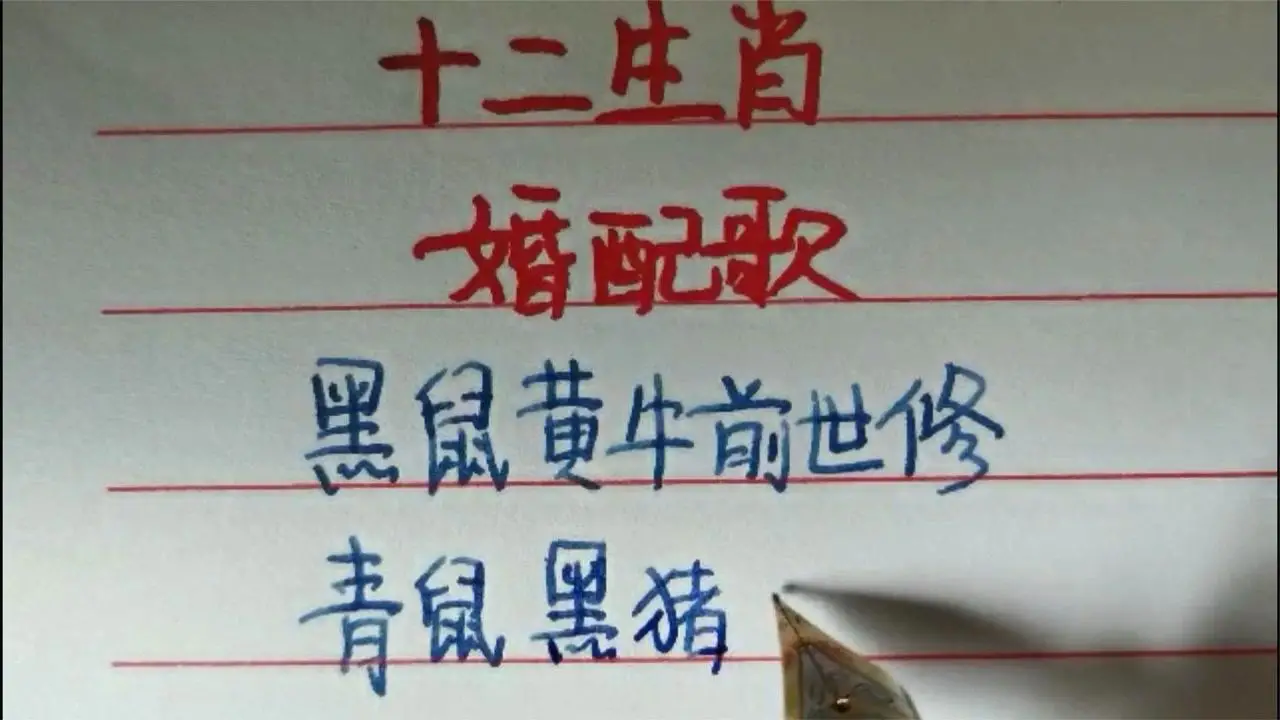 十二生肖
婚配歌
黑鼠黄牛前世修
青鼠黑猪